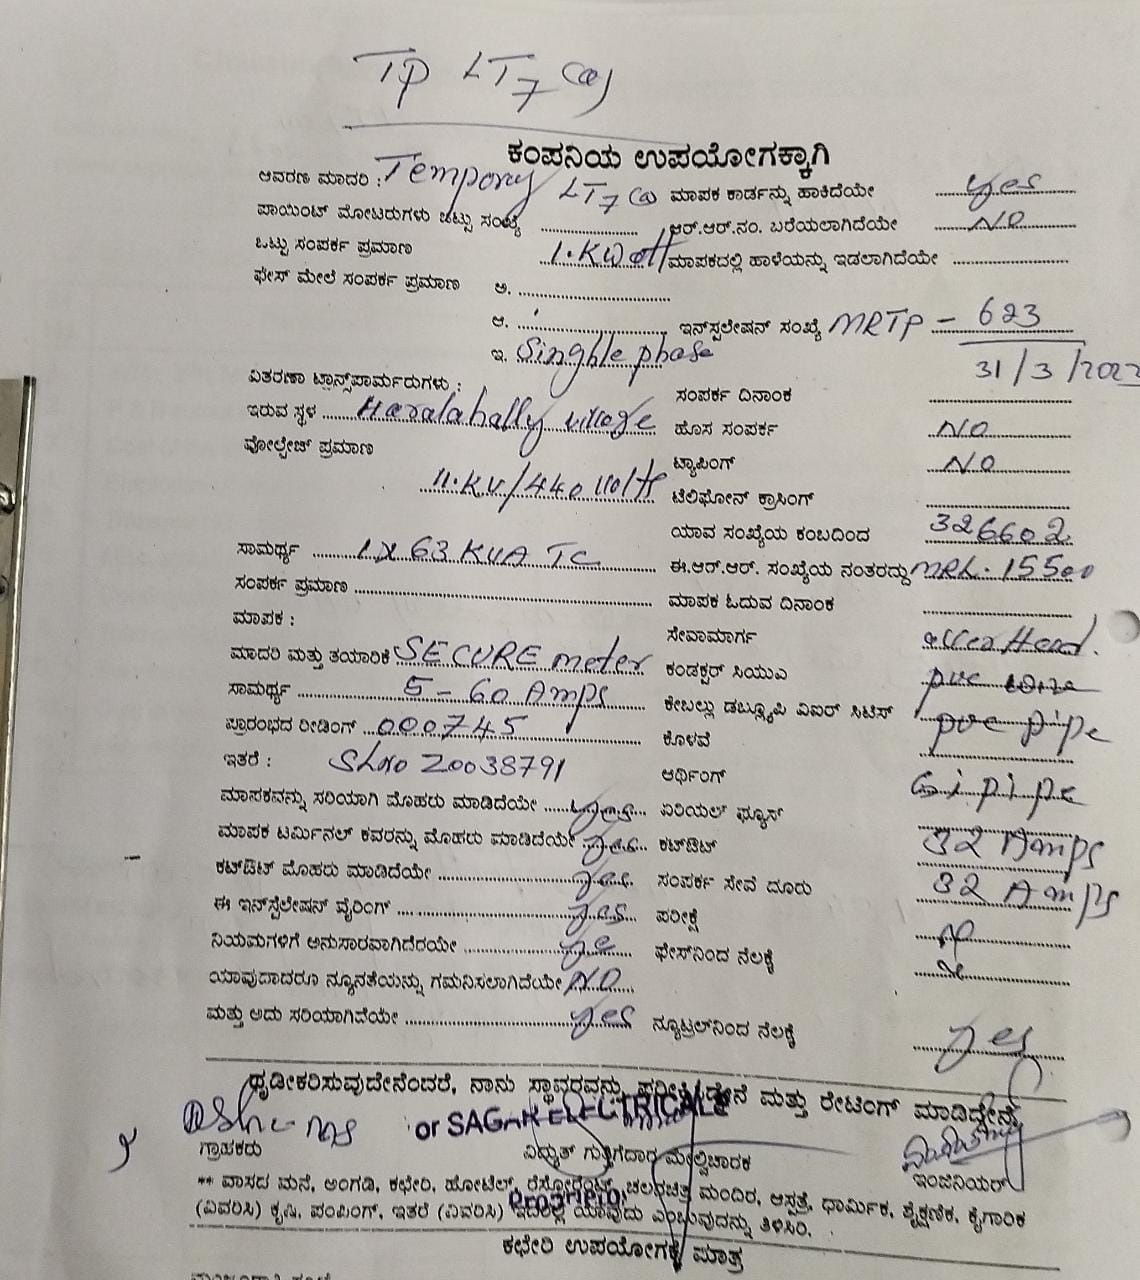 TP LT7 (a)
ಕಂಪನಿಯ ಉಪಯೋಗಕ್ಕಾಗಿ
ಆವರಣ ಮಾದರಿ : Tempory LT7 (a) ಮಾಪಕ ಕಾರ್ಡನ್ನು ಹಾಕಿದೆಯೇ yes
ಪಾಯಿಂಟ್ ಮೋಟರುಗಳು ಒಟ್ಟು ಸಂಖ್ಯೆ .................... ಆರ್.ಆರ್.ನಂ. ಬರೆಯಲಾಗಿದೆಯೇ NO
ಒಟ್ಟು ಸಂಪರ್ಕ ಪ್ರಮಾಣ 1.KWatt ಮಾಪಕದಲ್ಲಿ ಹಾಳೆಯನ್ನು ಇಡಲಾಗಿದೆಯೇ ....................
ಫೇಸ್ ಮೇಲೆ ಸಂಪರ್ಕ ಪ್ರಮಾಣ ಅ. ....................
ಆ. .................... ಇನ್‌ಸ್ಟಲೇಷನ್ ಸಂಖ್ಯೆ MRTP - 623
ಇ. Singhle phase 31/3/202
ವಿತರಣಾ ಟ್ರಾನ್ಸ್‌ಪಾರ್ಮರುಗಳು : ಸಂಪರ್ಕ ದಿನಾಂಕ ....................
ಇರುವ ಸ್ಥಳ Haralahally village ಹೊಸ ಸಂಪರ್ಕ NO
ವೋಲ್ಟೇಜ್ ಪ್ರಮಾಣ ಟ್ಯಾಪಿಂಗ್ NO
11.KV/440 Volts ಟೆಲಿಫೋನ್ ಕ್ರಾಸಿಂಗ್ ....................
ಯಾವ ಸಂಖ್ಯೆಯ ಕಂಬದಿಂದ 326602
ಸಾಮರ್ಥ್ಯ 1X63 KVA TC ಈ.ಆರ್.ಆರ್. ಸಂಖ್ಯೆಯ ನಂತರದ್ದು MRL.15500
ಸಂಪರ್ಕ ಪ್ರಮಾಣ .................... ಮಾಪಕ ಓದುವ ದಿನಾಂಕ ....................
ಮಾಪಕ : ಸೇವಾಮಾರ್ಗ Head.
ಮಾದರಿ ಮತ್ತು ತಯಾರಿಕೆ SECURE meter ಕಂಡಕ್ಟರ್ ಸಿಯುಎ pvc
ಸಾಮರ್ಥ್ಯ 5-60 Amps ಕೇಬಲ್ಲು ಡಬ್ಲ್ಯೂಪಿ ವಿಐಆರ್ ಸಿಟಿಸ್
ಪ್ರಾರಂಭದ ರೀಡಿಂಗ್ 000745 ಕೊಳವೆ pvc pipe
ಇತರೆ : Slno Z0038791 ಅರ್ಥಿಂಗ್ G i pipe
ಮಾಪಕವನ್ನು ಸರಿಯಾಗಿ ಮೊಹರು ಮಾಡಿದೆಯೇ yes ಏರಿಯಲ್ ಫ್ಯೂಸ್
ಮಾಪಕ ಟರ್ಮಿನಲ್ ಕವರನ್ನು ಮೊಹರು ಮಾಡಿದೆಯೇ yes ಕಟ್‌ಔಟ್ 32 Amps
ಕಟ್‌ಔಟ್ ಮೊಹರು ಮಾಡಿದೆಯೇ yes ಸಂಪರ್ಕ ಸೇವೆ ದೂರು 32 Amps
ಈ ಇನ್‌ಸ್ಟೆಲೇಷನ್ ವೈರಿಂಗ್ yes ಪರೀಕ್ಷೆ
ನಿಯಮಗಳಿಗೆ ಅನುಸಾರವಾಗಿದೆರಯೇ ye ಫೇಸ್‌ನಿಂದ ನೆಲಕ್ಕೆ
ಯಾವುದಾದರೂ ನ್ಯೂನತೆಯನ್ನು ಗಮನಿಸಲಾಗಿದೆಯೇ NO
ಮತ್ತು ಅದು ಸರಿಯಾಗಿದೆಯೇ yes ನ್ಯೂಟ್ರಲ್‌ನಿಂದ ನೆಲಕ್ಕೆ yes
ಧೃಡೀಕರಿಸುವುದೇನೆಂದರೆ, ನಾನು ಸ್ಥಾವರವನ್ನು ಪರೀಕ್ಷಿಸಿದ್ದೇನೆ ಮತ್ತು ರೇಟಿಂಗ್ ಮಾಡಿದ್ದೇನೆ
or SAGAR ELECTRICALS
ಗ್ರಾಹಕರು ವಿದ್ಯುತ್ ಗುತ್ತಿಗೆದಾರ ಮೇಲ್ವಿಚಾರಕ ಇಂಜಿನಿಯರ್
** ವಾಸದ ಮನೆ, ಅಂಗಡಿ, ಕಛೇರಿ, ಹೋಟೆಲ್, ರೆಸ್ಟೋರೆಂಟ್, ಚಲನಚಿತ್ರ ಮಂದಿರ, ಆಸ್ಪತ್ರೆ, ಧಾರ್ಮಿಕ, ಶೈಕ್ಷಣಿಕ, ಕೈಗಾರಿಕ
(ವಿವರಿಸಿ) ಕೃಷಿ, ಪಂಪಿಂಗ್, ಇತರೆ (ವಿವರಿಸಿ) ಇದರಲ್ಲಿ ಯಾವುದು ಎಂಬುವುದನ್ನು ತಿಳಿಸಿರಿ.
ಕಛೇರಿ ಉಪಯೋಗಕ್ಕೆ ಮಾತ್ರ